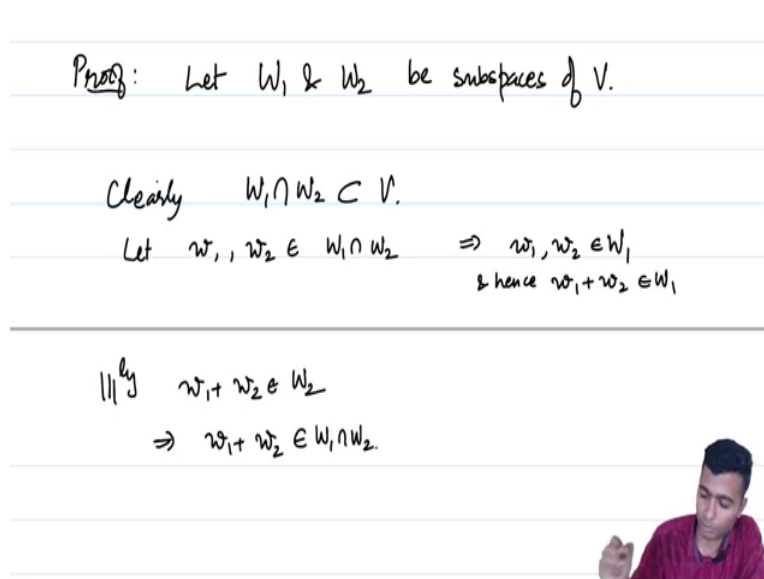 Proof: Let W₁ & W₂ be subspaces of V.
Clearly W₁∩W₂ ⊂ V.
Let w₁, w₂ ∈ W₁∩W₂ ⇒ w₁, w₂ ∈ W₁
& hence w₁+w₂ ∈ W₁
|||ly w₁+ w₂ ∈ W₂
⇒ w₁+ w₂ ∈ W₁∩W₂.